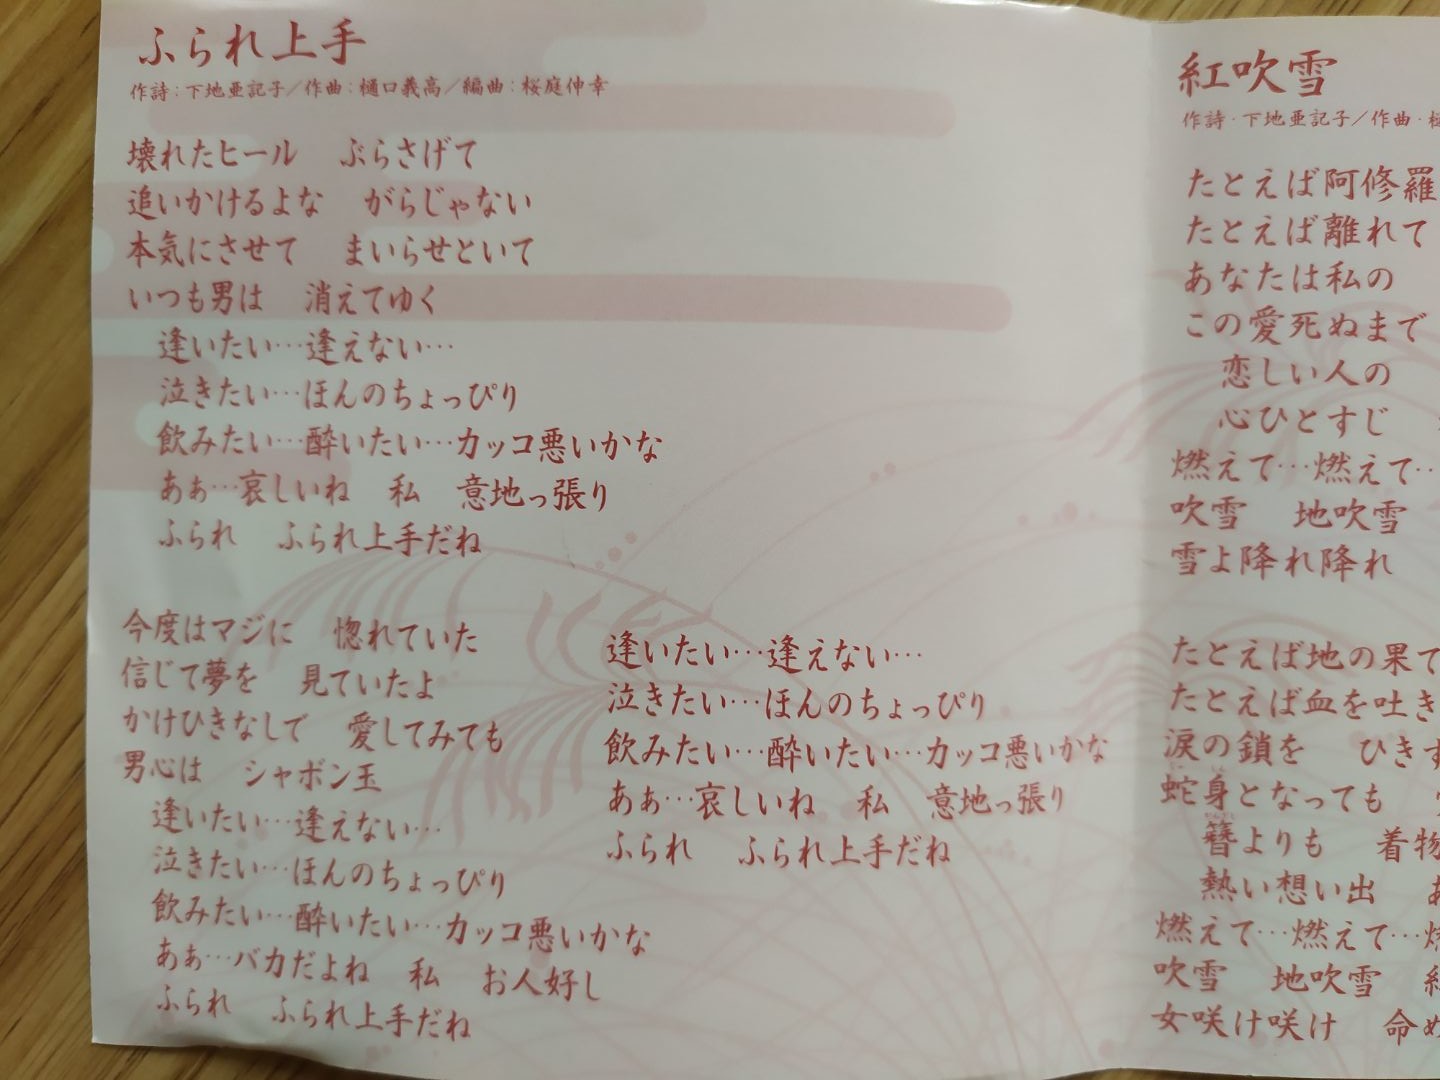 ふられ上手
作詩：下地亜記子／作曲：樋口義高／編曲：桜庭伸幸
壊れたヒール　ぶらさげて
追いかけるよな　がらじゃない
本気にさせて　まいらせといて
いつも男は　消えてゆく
逢いたい…逢えない…
泣きたい…ほんのちょっぴり
飲みたい…酔いたい…カッコ悪いかな
あぁ…哀しいね　私　意地っ張り
ふられ　ふられ上手だね
今度はマジに　惚れていた
信じて夢を　見ていたよ
かけひきなしで　愛してみても
男心は　シャボン玉
逢いたい…逢えない…
泣きたい…ほんのちょっぴり
飲みたい…酔いたい…カッコ悪いかな
あぁ…バカだよね　私　お人好し
ふられ　ふられ上手だね
逢いたい…逢えない…
泣きたい…ほんのちょっぴり
飲みたい…酔いたい…カッコ悪いかな
あぁ…哀しいね　私　意地っ張り
ふられ　ふられ上手だね
紅吹雪
作詩：下地亜記子／作曲：
たとえば阿修羅
たとえば離れて
あなたは私の
この愛死ぬまで
恋しい人の
心ひとすじ
燃えて…燃えて…
吹雪　地吹雪
雪よ降れ降れ
たとえば地の果て
たとえば血を吐き
涙の鎖を　ひきず
蛇身となっても
簪よりも　着物
熱い想い出　あ
燃えて…燃えて…燃
吹雪　地吹雪　紅
女咲け咲け　命